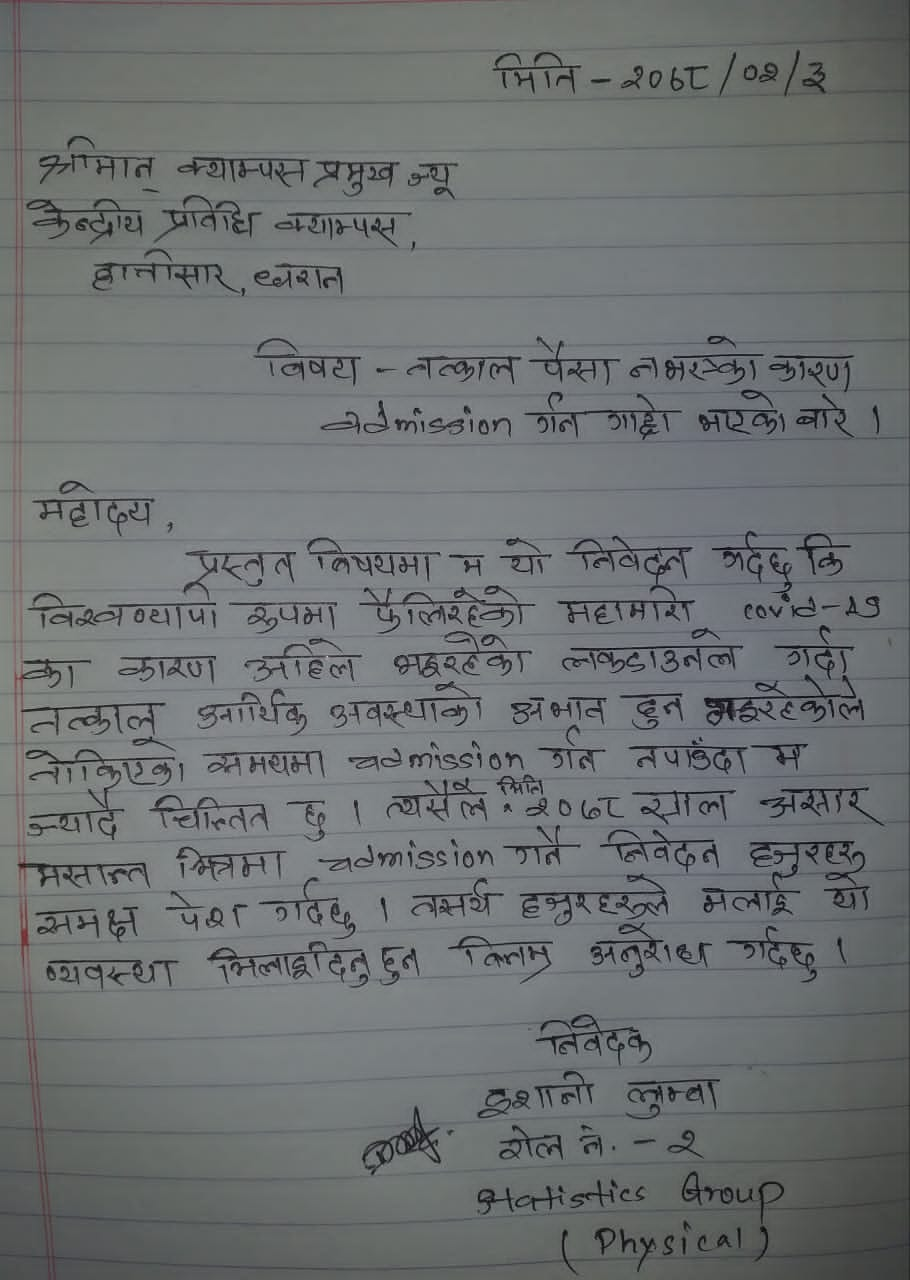 मिति - २०७८/०२/३
श्रीमान् क्याम्पस प्रमुख ज्यू
केन्द्रीय प्रविधि क्याम्पस,
हात्तीसार, धरान
विषय - तत्काल पैसा नभएको कारण
admission गर्न गाह्रो भएको बारे ।
महोदय,
प्रस्तुत विषयमा म यो निवेदन गर्दछु कि
विश्वव्यापी रुपमा फैलिरहेको महामारी covid-19
का कारण अहिले भइरहेको लकडाउनले गर्दा
तत्काल आर्थिक अवस्थाको अभाव हुन भइरहेकोले
तोकिएको समयमा admission गर्न नपाउँदा म
ज्यादै चिन्तित छु । त्यसैले मिति २०७८ साल असार
मसान्त भित्रमा admission गर्ने निवेदन हजुरहरु
समक्ष पेश गर्दछु । तसर्थ हजुरहरुले मलाई यो
व्यवस्था मिलाइदिनु हुन विनम्र अनुरोध गर्दछु ।
निवेदक
इशानी लुम्बा
रोल नं. - २
statistics Group
(Physical)